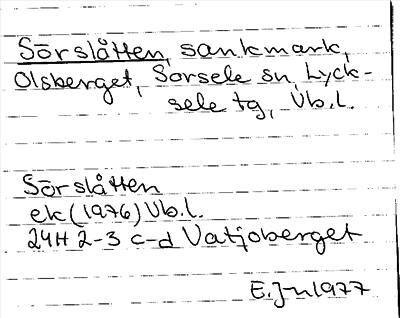 Sörslåtten, sankmark,
Olsberget, Sorsele sn, Lyck-
sele tg, Vb.l.
Sörslåtten
ek (1976) Vb.l.
24H 2-3 c-d Vatjoberget
E. J-n 1977